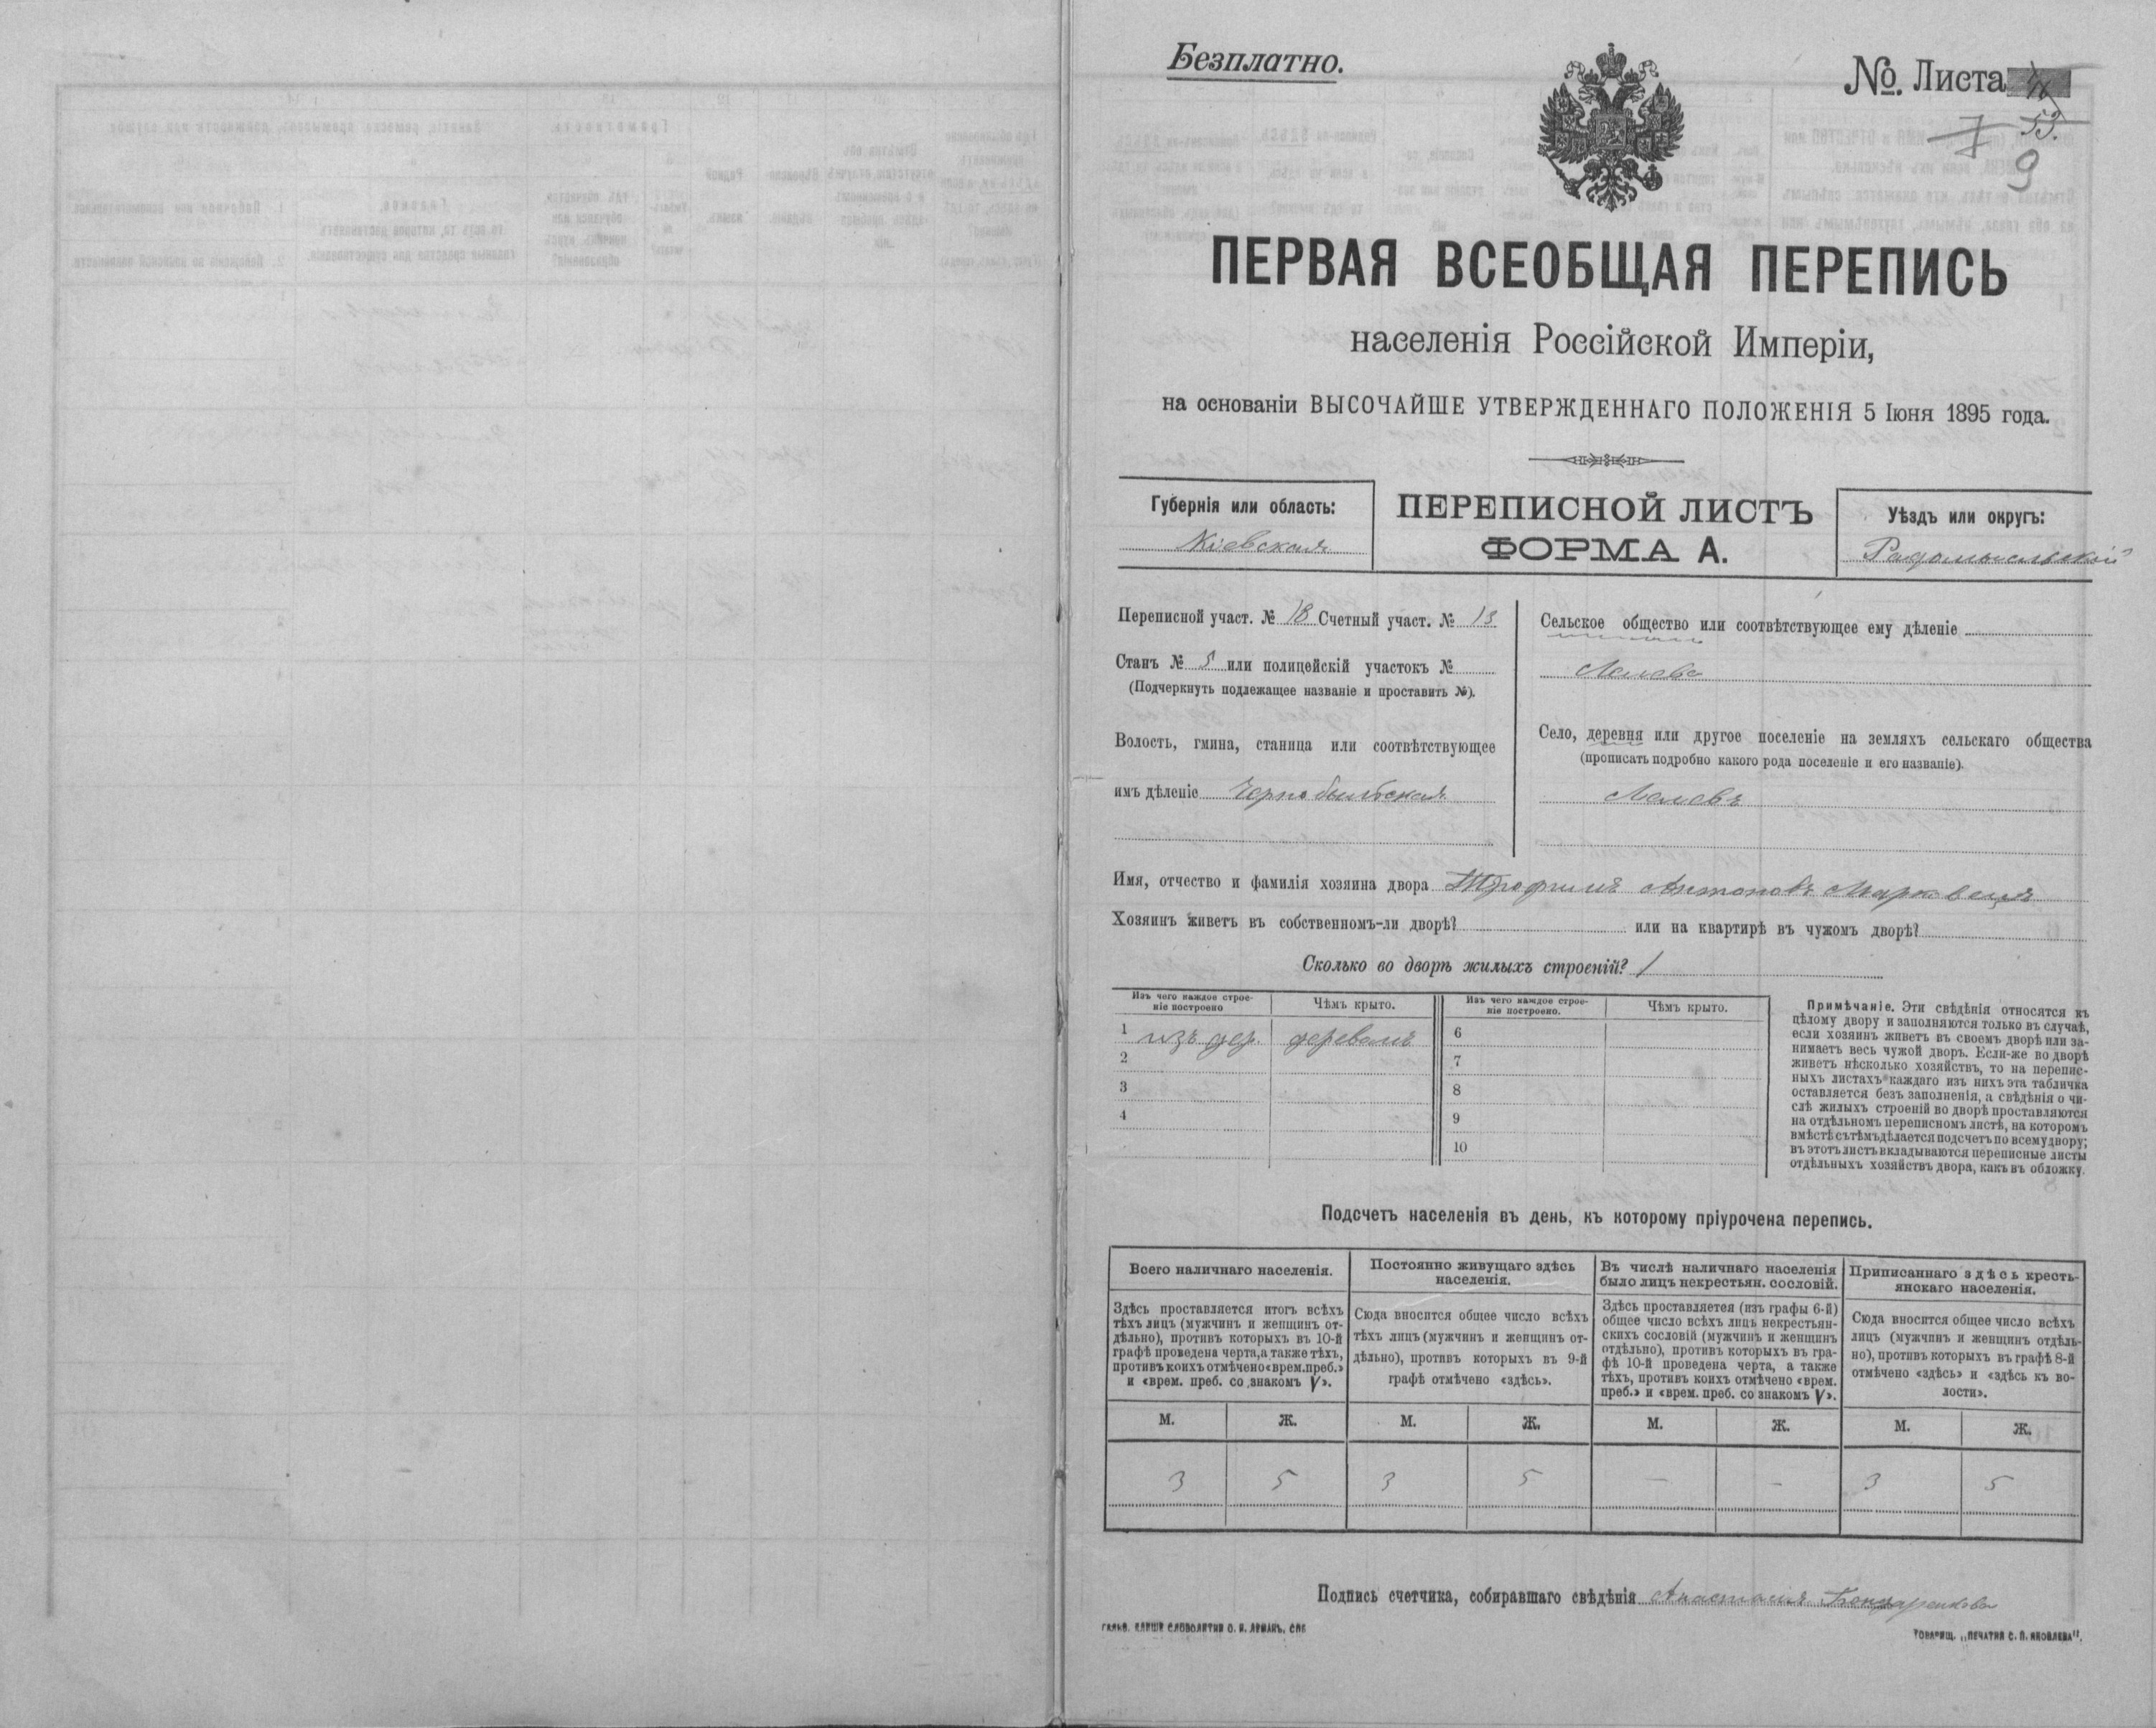 Безплатно.
№ Листа
53.
7
9
ПЕРВАЯ ВСЕОБЩАЯ ПЕРЕПИСЬ
населенія Россійской Имперіи,
на основаніи ВЫСОЧАЙШЕ УТВЕРЖДЕННАГО ПОЛОЖЕНІЯ 5 Іюня 1895 года.
Губернія или область:
Кіевская
ПЕРЕПИСНОЙ ЛИСТЪ
ФОРМА А.
Уѣздъ или округъ:
Радомысльскій
Переписной участ. № 18 Счетный участ. № 13
Станъ № 5 или полицейскій участокъ №
(Подчеркнуть подлежащее названіе и проставить №).
Волость, гмина, станица или соотвѣтствующее
имъ дѣленіе Чернобыльская
Сельское общество или соотвѣтствующее ему дѣленіе
Село, деревня или другое поселеніе на земляхъ сельскаго общества
(прописать подробно какого рода поселеніе и его названіе).
Лелевъ
Имя, отчество и фамилія хозяина двора Трофимъ Антоновъ Марковецъ
Хозяинъ живетъ въ собственномъ-ли дворѣ? или на квартирѣ въ чужомъ дворѣ?
Сколько во дворѣ жилыхъ строеній? 1
Изъ чего каждое строе-
ніе построено
Чѣмъ крыто.
Изъ чего каждое строе-
ніе построено.
Чѣмъ крыто.
1 изъ дер. деревомъ
2
3
4
6
7
8
9
10
Примѣчаніе. Эти свѣдѣнія относятся къ
цѣлому двору и заполняются только въ случаѣ,
если хозяинъ живетъ въ своемъ дворѣ или за-
нимаетъ весь чужой дворъ. Если-же во дворѣ
живетъ нѣсколько хозяйствъ, то на перепис-
ныхъ листахъ каждаго изъ нихъ эта табличка
оставляется безъ заполненія, а свѣдѣнія о чи-
слѣ жилыхъ строеній во дворѣ проставляются
на отдѣльномъ переписномъ листѣ, на которомъ
вмѣстѣ съ тѣмъ дѣлается подсчетъ по всему двору;
въ этотъ листъ вкладываются переписные листы
отдѣльныхъ хозяйствъ двора, какъ въ обложку.
Подсчетъ населенія въ день, къ которому пріурочена перепись.
Всего наличнаго населенія.
Здѣсь проставляется итогъ всѣхъ
тѣхъ лицъ (мужчинъ и женщинъ от-
дѣльно), противъ которыхъ въ 10-й
графѣ проведена черта, а также тѣхъ,
противъ коихъ отмѣчено «врем. преб.»
и «врем. преб. со знакомъ V».
Постоянно живущаго здѣсь
населенія.
Сюда вносится общее число всѣхъ
тѣхъ лицъ (мужчинъ и женщинъ от-
дѣльно), противъ которыхъ въ 9-й
графѣ отмѣчено «здѣсь».
Въ числѣ наличнаго населенія
было лицъ некрестьян. сословій.
Здѣсь проставляется (изъ графы 6-й)
общее число всѣхъ лицъ некрестьян-
скихъ сословій (мужчинъ и женщинъ
отдѣльно), противъ которыхъ въ гра-
фѣ 10-й проведена черта, а также
тѣхъ, противъ коихъ отмѣчено «врем.
преб.» и «врем. преб. со знакомъ V».
Приписаннаго здѣсь кресть-
янскаго населенія.
Сюда вносится общее число всѣхъ
лицъ (мужчинъ и женщинъ отдѣль-
но), противъ которыхъ въ графѣ 8-й
отмѣчено «здѣсь» и «здѣсь къ во-
лости».
М. Ж. М. Ж. М. Ж. М. Ж.
3 5 3 5 – – 3 5
Подпись счетчика, собиравшаго свѣдѣнія Анастасія Бондаренкова
ГАЛЬВ. КЛИШЕ СЛОВОЛИТНИ О. И. ЛЕМАНЪ, СПБ
ТОВАРИЩ. „ПЕЧАТНЯ С. П. ЯКОВЛЕВА".